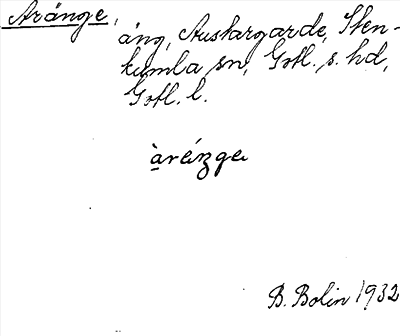 Aränge, äng, Austargarde, Sten-
kumla sn, Gotl. s. hd,
Gotl. l.
àréŋge
B. Bolin 1932